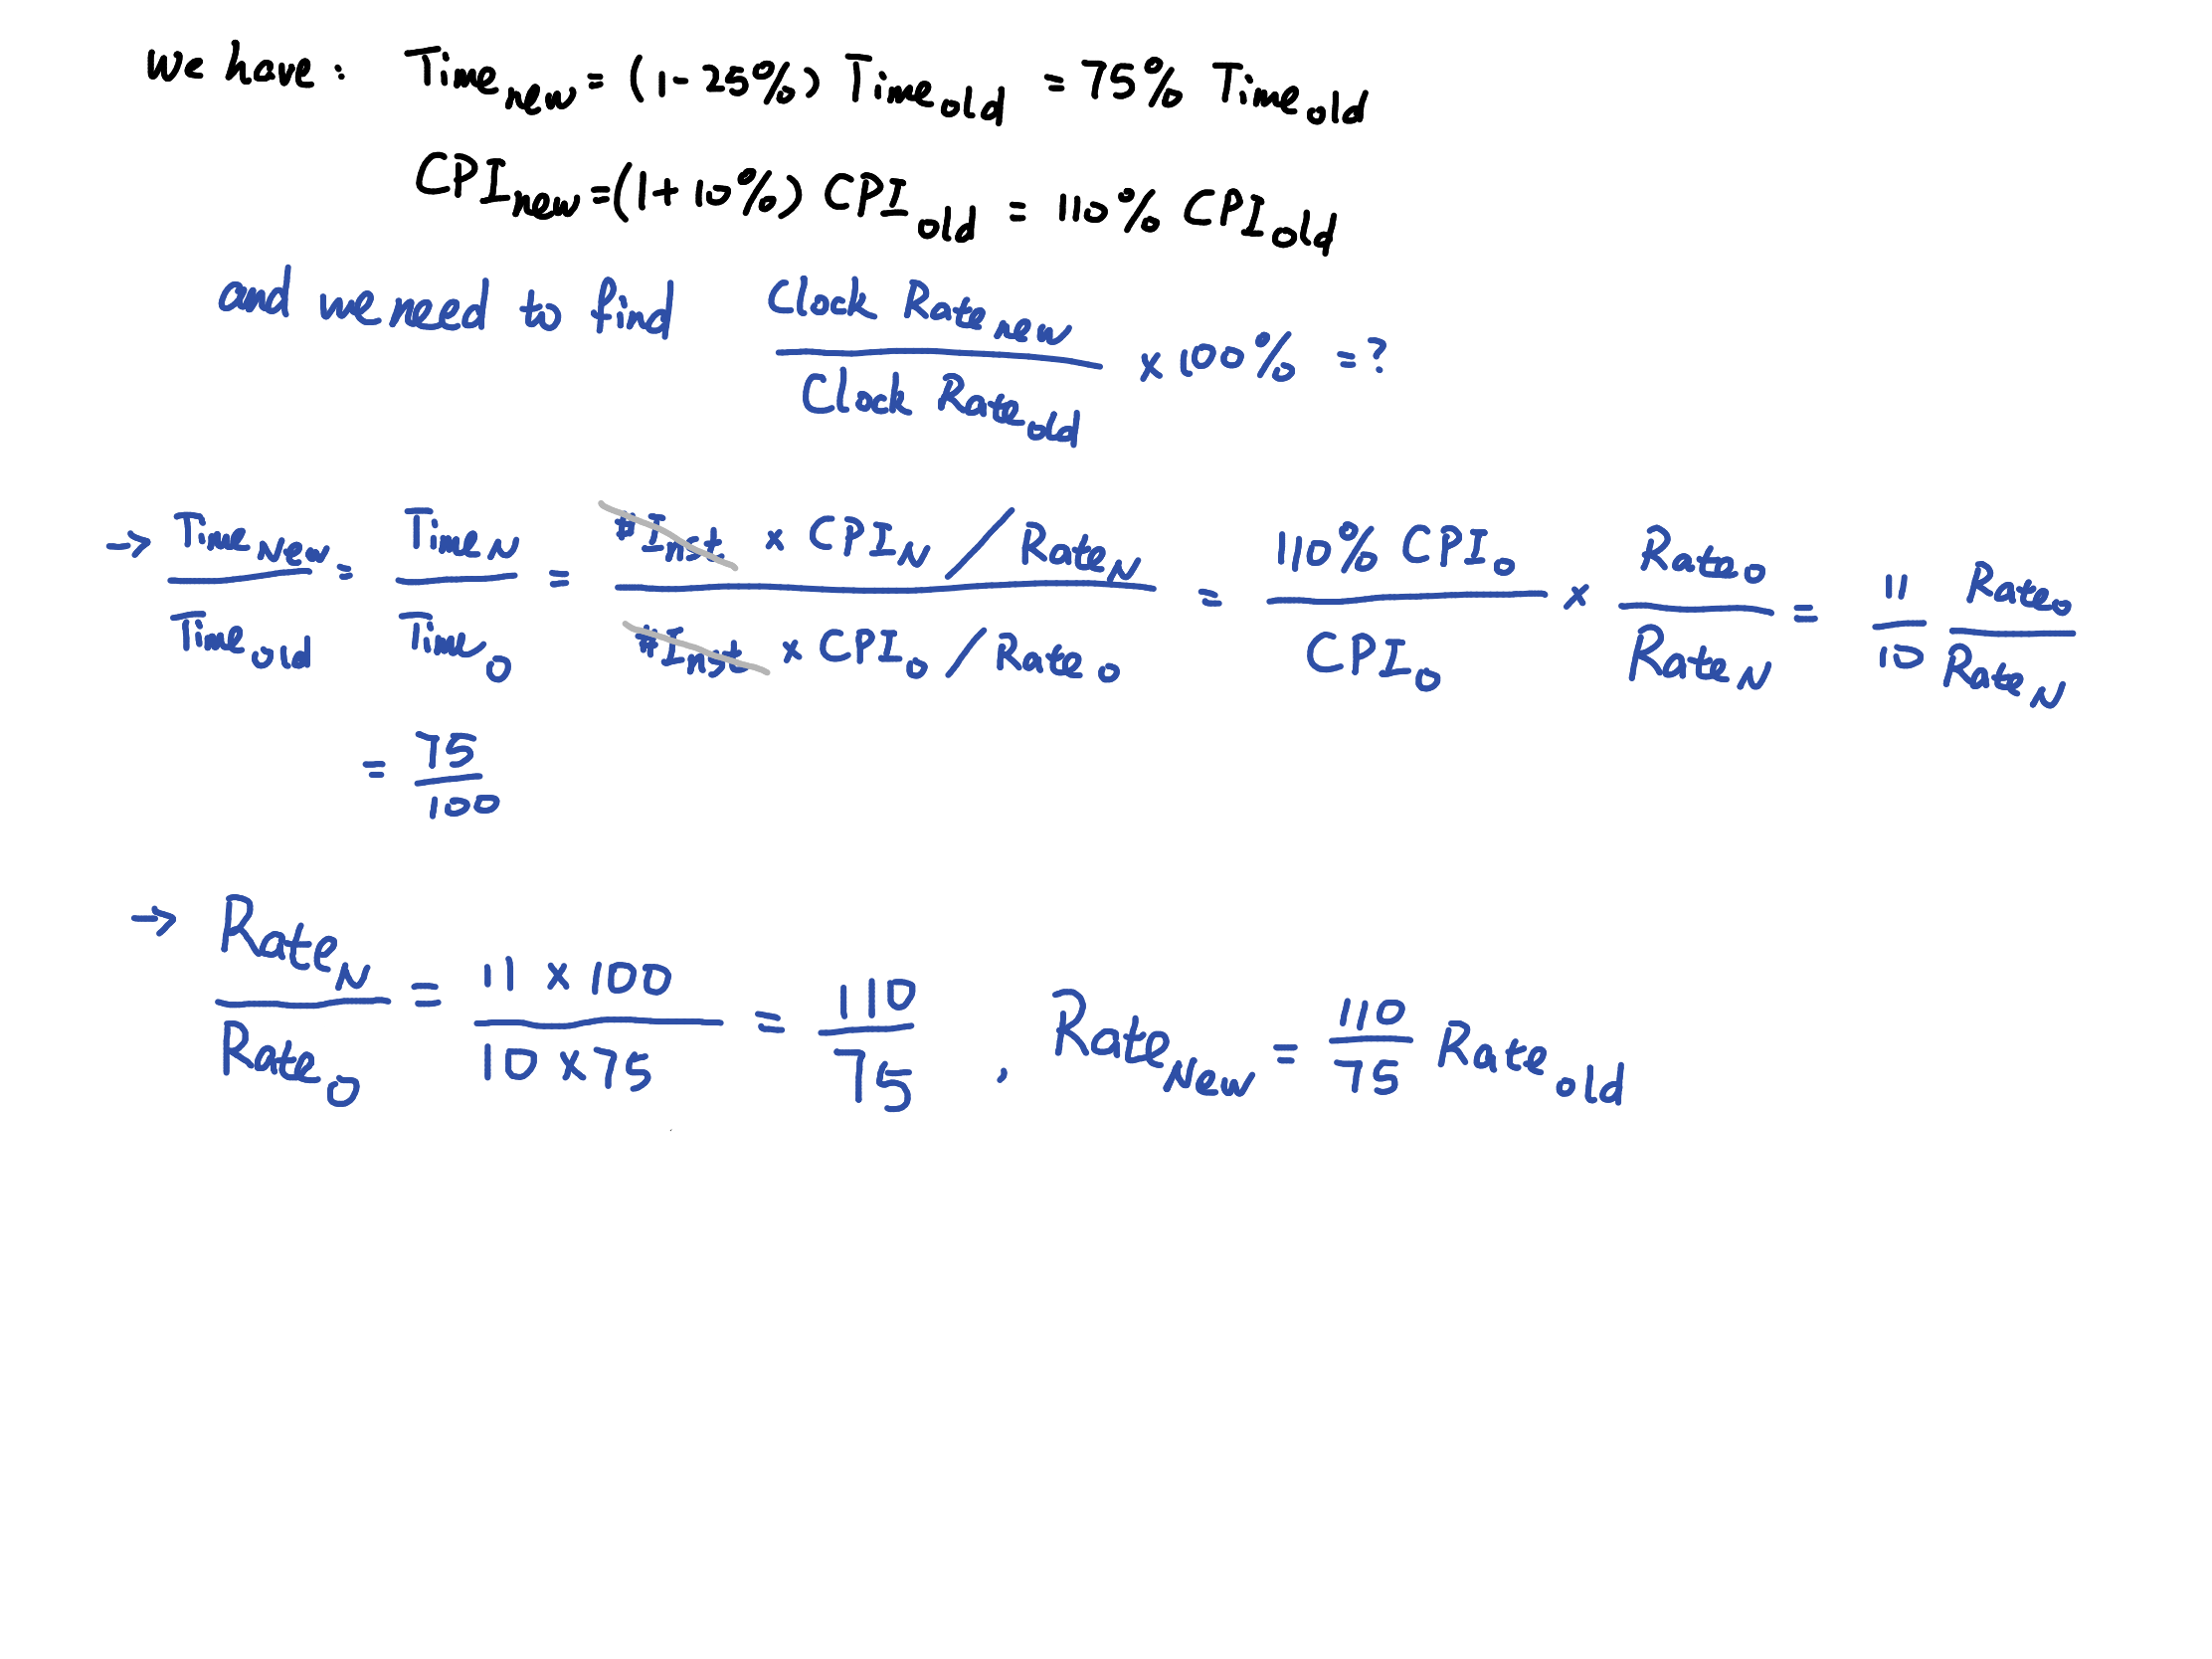 We have: Time new = (1-25%) Time old = 75% Time old
CPI new = (1+10%) CPI old = 110% CPI old
and we need to find Clock Rate new / Clock Rate old × 100% = ?
→ Time New / Time old = Time N / Time o = #Inst × CPI N / Rate N / #Inst × CPI o / Rate o = 110% CPI o / CPI o × Rate o / Rate N = 11/10 Rate o / Rate N
= 75/100
→ Rate N / Rate o = 11 × 100 / 10 × 75 = 110/75 , Rate New = 110/75 Rate old